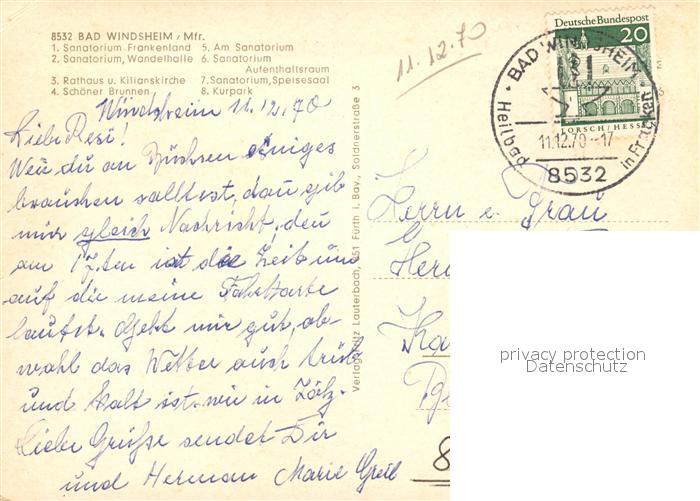 8532 BAD WINDSHEIM / Mfr.
1. Sanatorium Frankenland 5. Am Sanatorium
2. Sanatorium, Wandelhalle 6. Sanatorium
Aufenthaltsraum
3. Rathaus u. Kilianskirche 7. Sanatorium, Speisesaal
4. Schöner Brunnen 8. Kurpark
11.12.70
Deutsche Bundespost
20
LORSCH/HESSEN
BAD WINDSHEIM
11.12.70-17
8532
Heilbad in Franken
Windsheim 11.12.70
Liebe Resi!
Wen du an einiges
brauchen solltest, dan gib
mir gleich Nachricht, den
am 17ten ist die Zeit um
auf die meine Fahrkarte
lautet. Geht mir gut, ob-
wohl das Wetter auch trüb
und kalt ist. wie in Tölz.
Liebe Grüße sendet Dir
und Herman Marie Greil
Verlag Fritz Lauterbach, 851 Fürth i. Bay., Soldnerstraße 3
Herrn u. Frau
privacy protection
Datenschutz